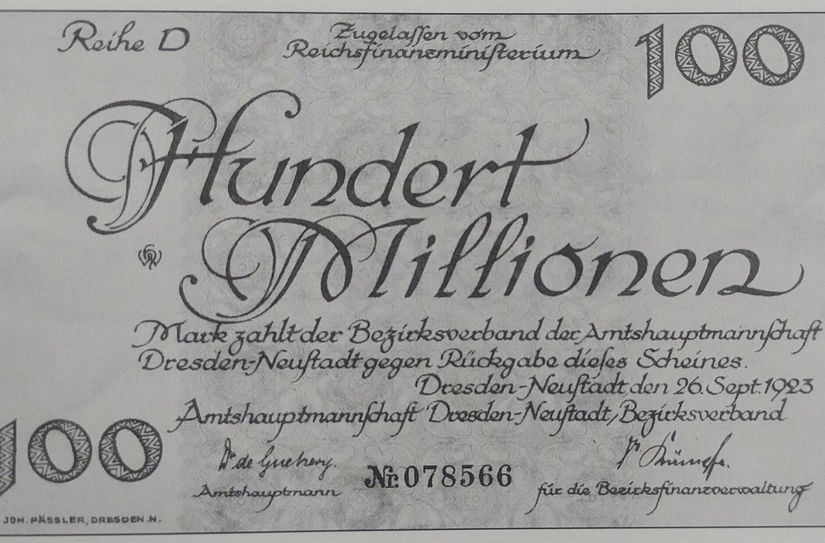 Reihe D
Zugelassen vom
Reichsfinanzministerium
100
Hundert
Millionen
Mark zahlt der Bezirksverband der Amtshauptmannschaft
Dresden-Neustadt gegen Rückgabe dieses Scheines.
Dresden-Neustadt, den 26. Sept. 1923
Amtshauptmannschaft Dresden-Neustadt, Bezirksverband
100
Nr. 078566
Amtshauptmann
für die Bezirksfinanzverwaltung
JOH. PÄSSLER, DRESDEN.N.